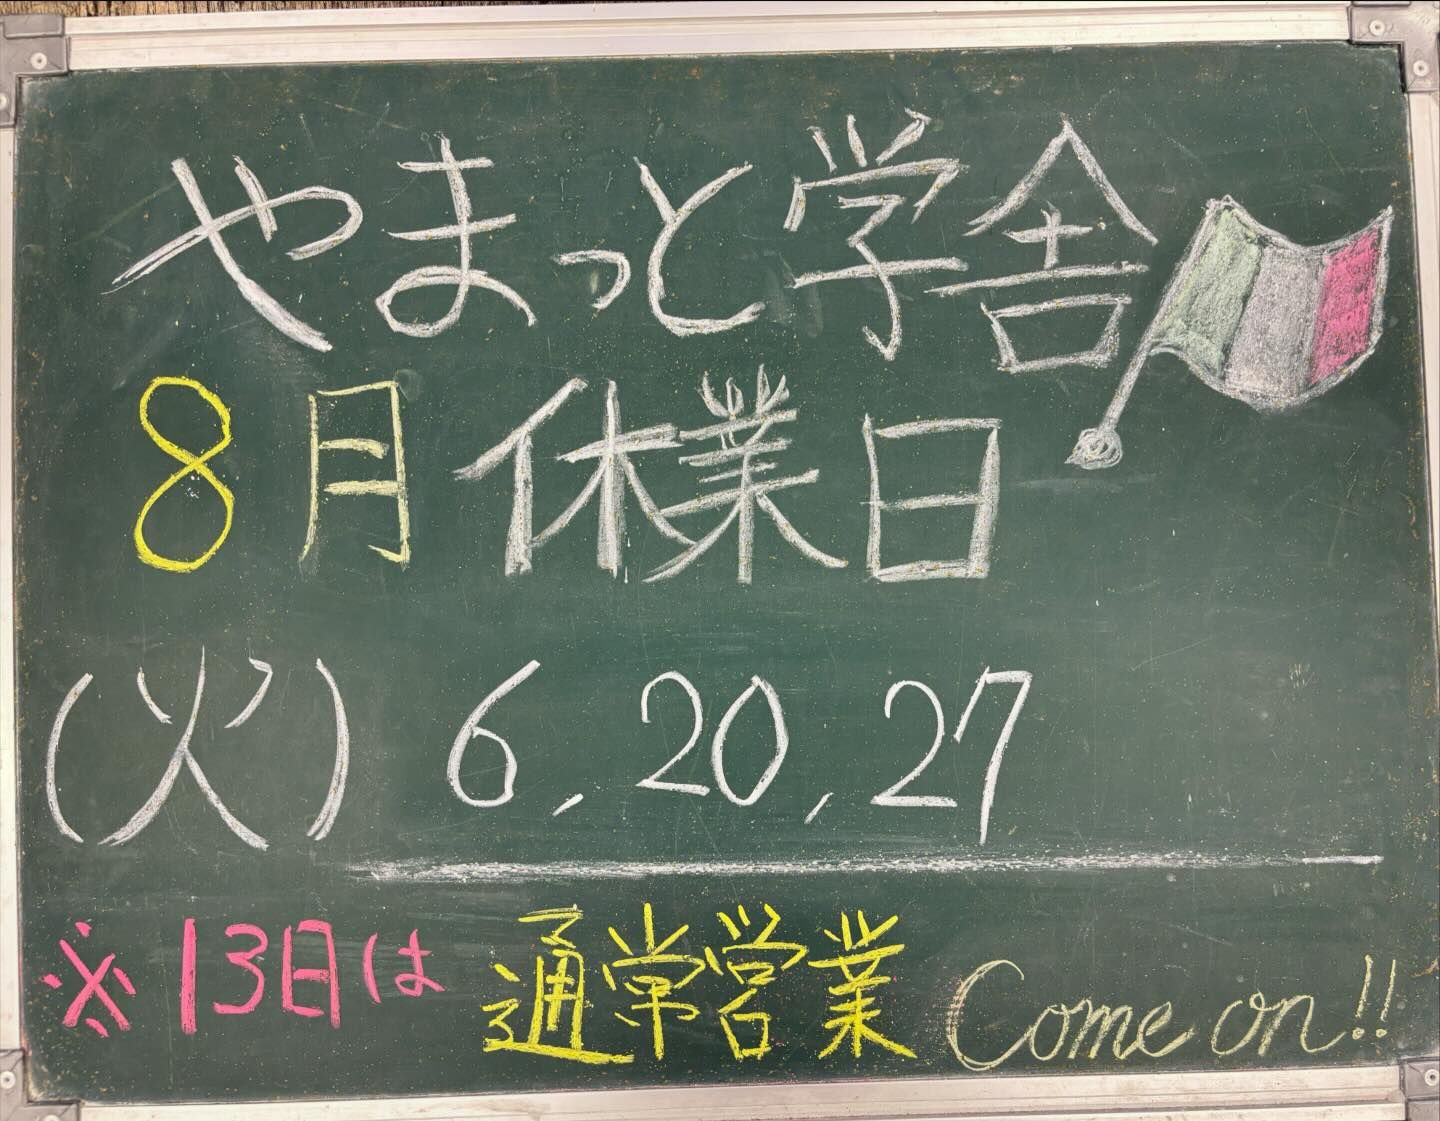 やまっと学舎
8月休業日
(火) 6, 20, 27
※13日は 通常営業 Come on!!